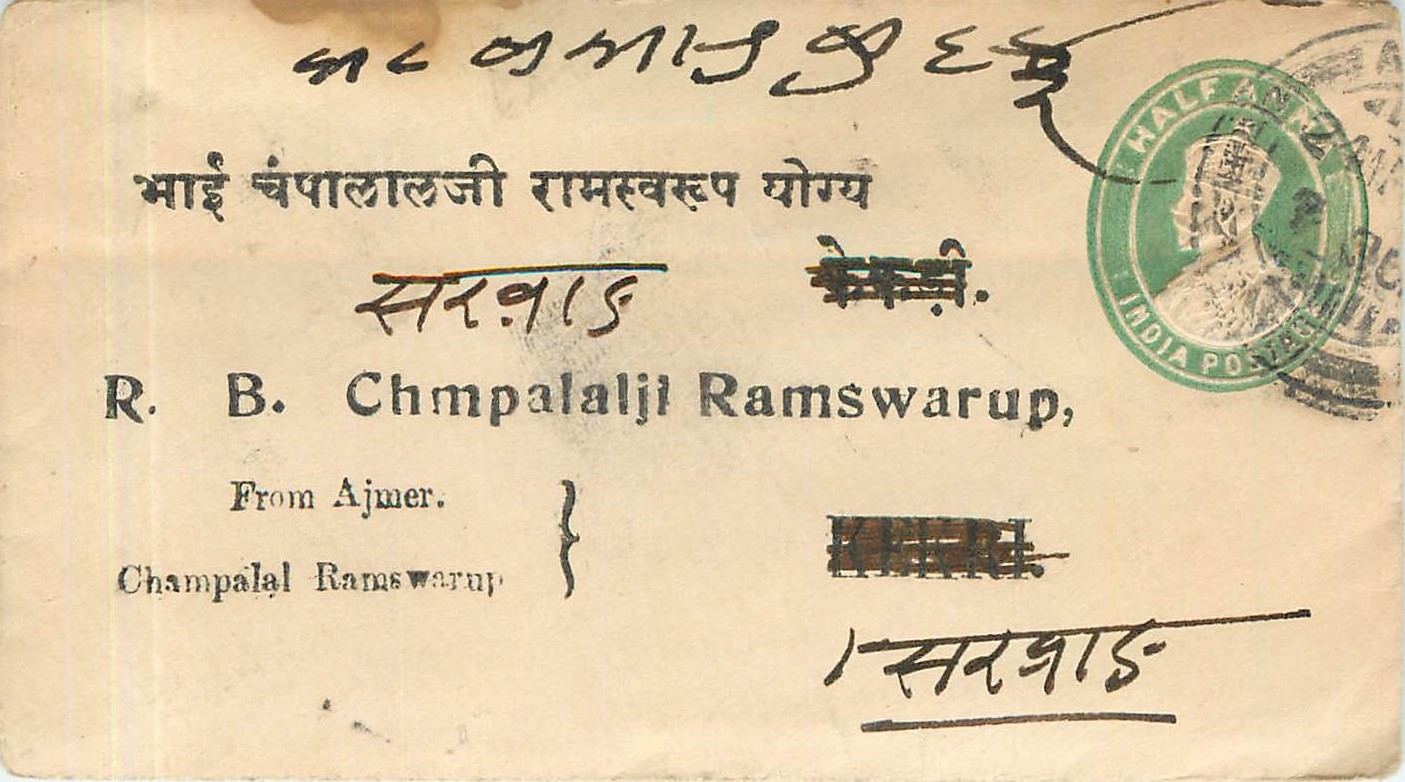 HALF ANNA
भाई चंपालालजी रामस्वरूप योग्य
केकड़ी.
सरवाड
INDIA POSTAGE
R. B. Chmpalalji Ramswarup,
From Ajmer.
Champalal Ramswarup
KEKRI.
सरवाड